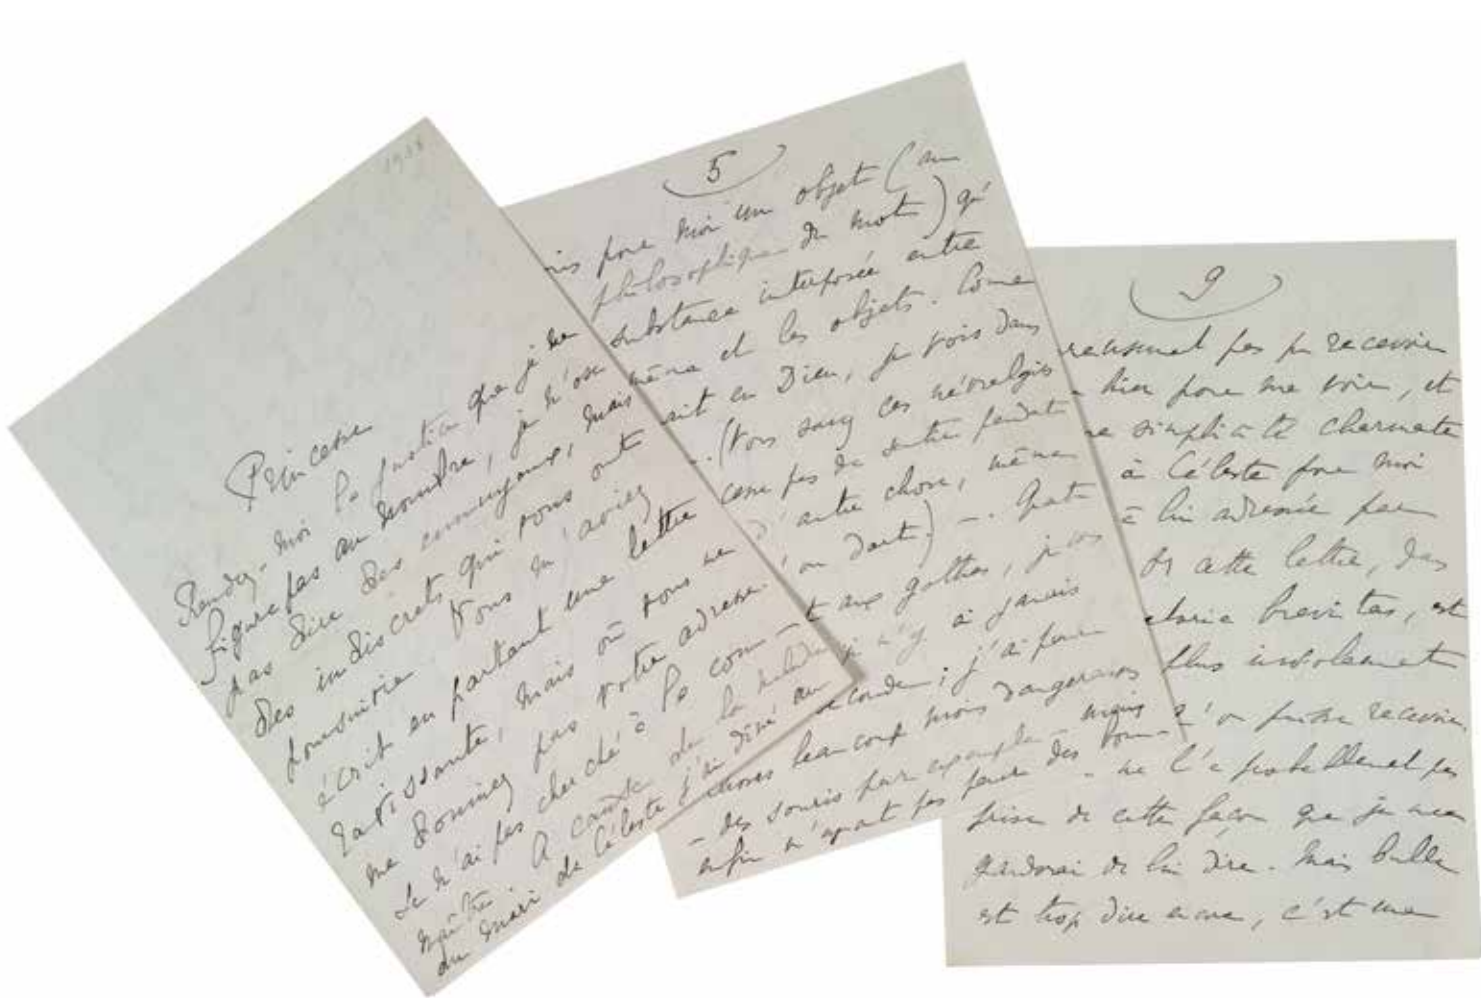 1918
Princesse
Rendez-moi la justice que je ne
figure pas au nombre, je n'ose
pas dire des ennuyeux, mais
des indiscrets qui vous ont
poursuivie. Vous m'aviez
écrit en partant une lettre
ravissante, mais où vous ne
me donniez pas votre adresse.
Je n'ai pas cherché à la con-
naître. A cause de la maladie
du mari de Céleste j'ai dîné au
5
pour moi un objet (au
philosophique du mot) qu'
substance interposée entre
même et les objets. Comme
voit en Dieu, je vois dans
(Vous savez ces névralgies
pas de sentir pendant
d'autre chose, même
ou d'art) –. Quant
aux gothas, je
n'y ai jamais
; j'ai peur
choses beaucoup moins dangereuses
– des souris par exemple – mais
enfin n'ayant pas peur des bom-
9
pas pu recevoir
hier pour me voir, et
simplicité charmante
à Céleste pour moi
à lui adressée par
Or cette lettre, dans
brevitas, est
plus insolemment
qu'on puisse recevoir.
ne l'a probablement pas
prise de cette façon que je me
garderai de lui dire. Mais bulle
est trop dire encore, c'est une